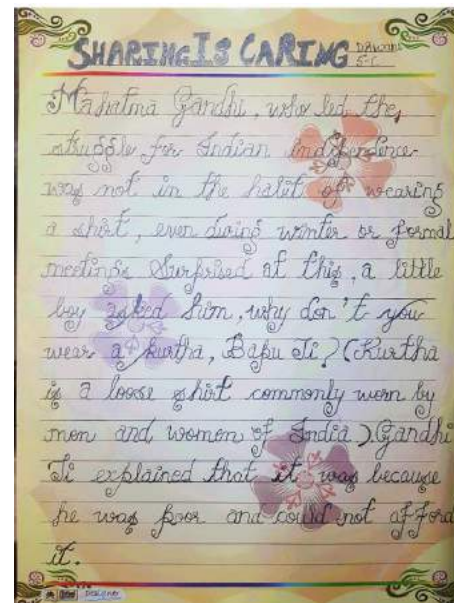 SHARING IS CARING
5-C
Mahatma Gandhi, who led the,
struggle for Indian independence
was not in the habit of wearing
a shirt, even during winter or formal
meetings Surprised at this, a little
boy asked him, why don't you
wear a kurtha, Bapu Ji? (Kurtha
is a loose shirt commonly worn by
men and women of India). Gandhi
Ji explained that it was because
he was poor and could not afford
it.